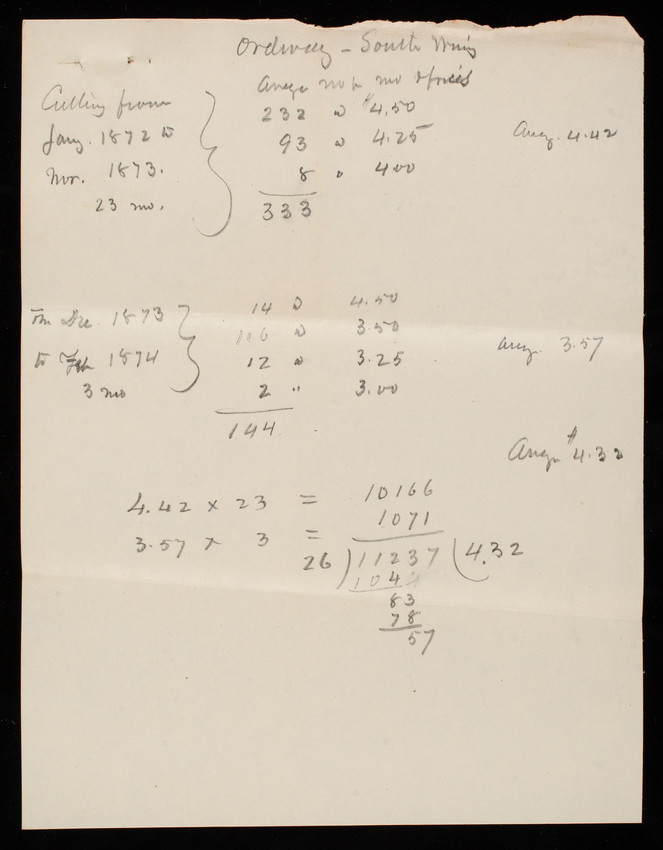 Ordway - South Wing
Average no per mo & prices
Cutting from
Jany. 1872 to
Nov. 1873.
23 mo.
232 @ $4.50
93 @ 4.25
8 " 4.00
333
Avg. 4.42
Dec. 1873
to Feb 1874
3 mo
14 @ 4.50
116 @ 3.50
12 @ 3.25
2 " 3.00
144
Avg. 3.57
Avge $4.32
4.42 x 23 = 10166
3.57 x 3 = 1071
26 ) 11237 ( 4.32
104
83
78
57